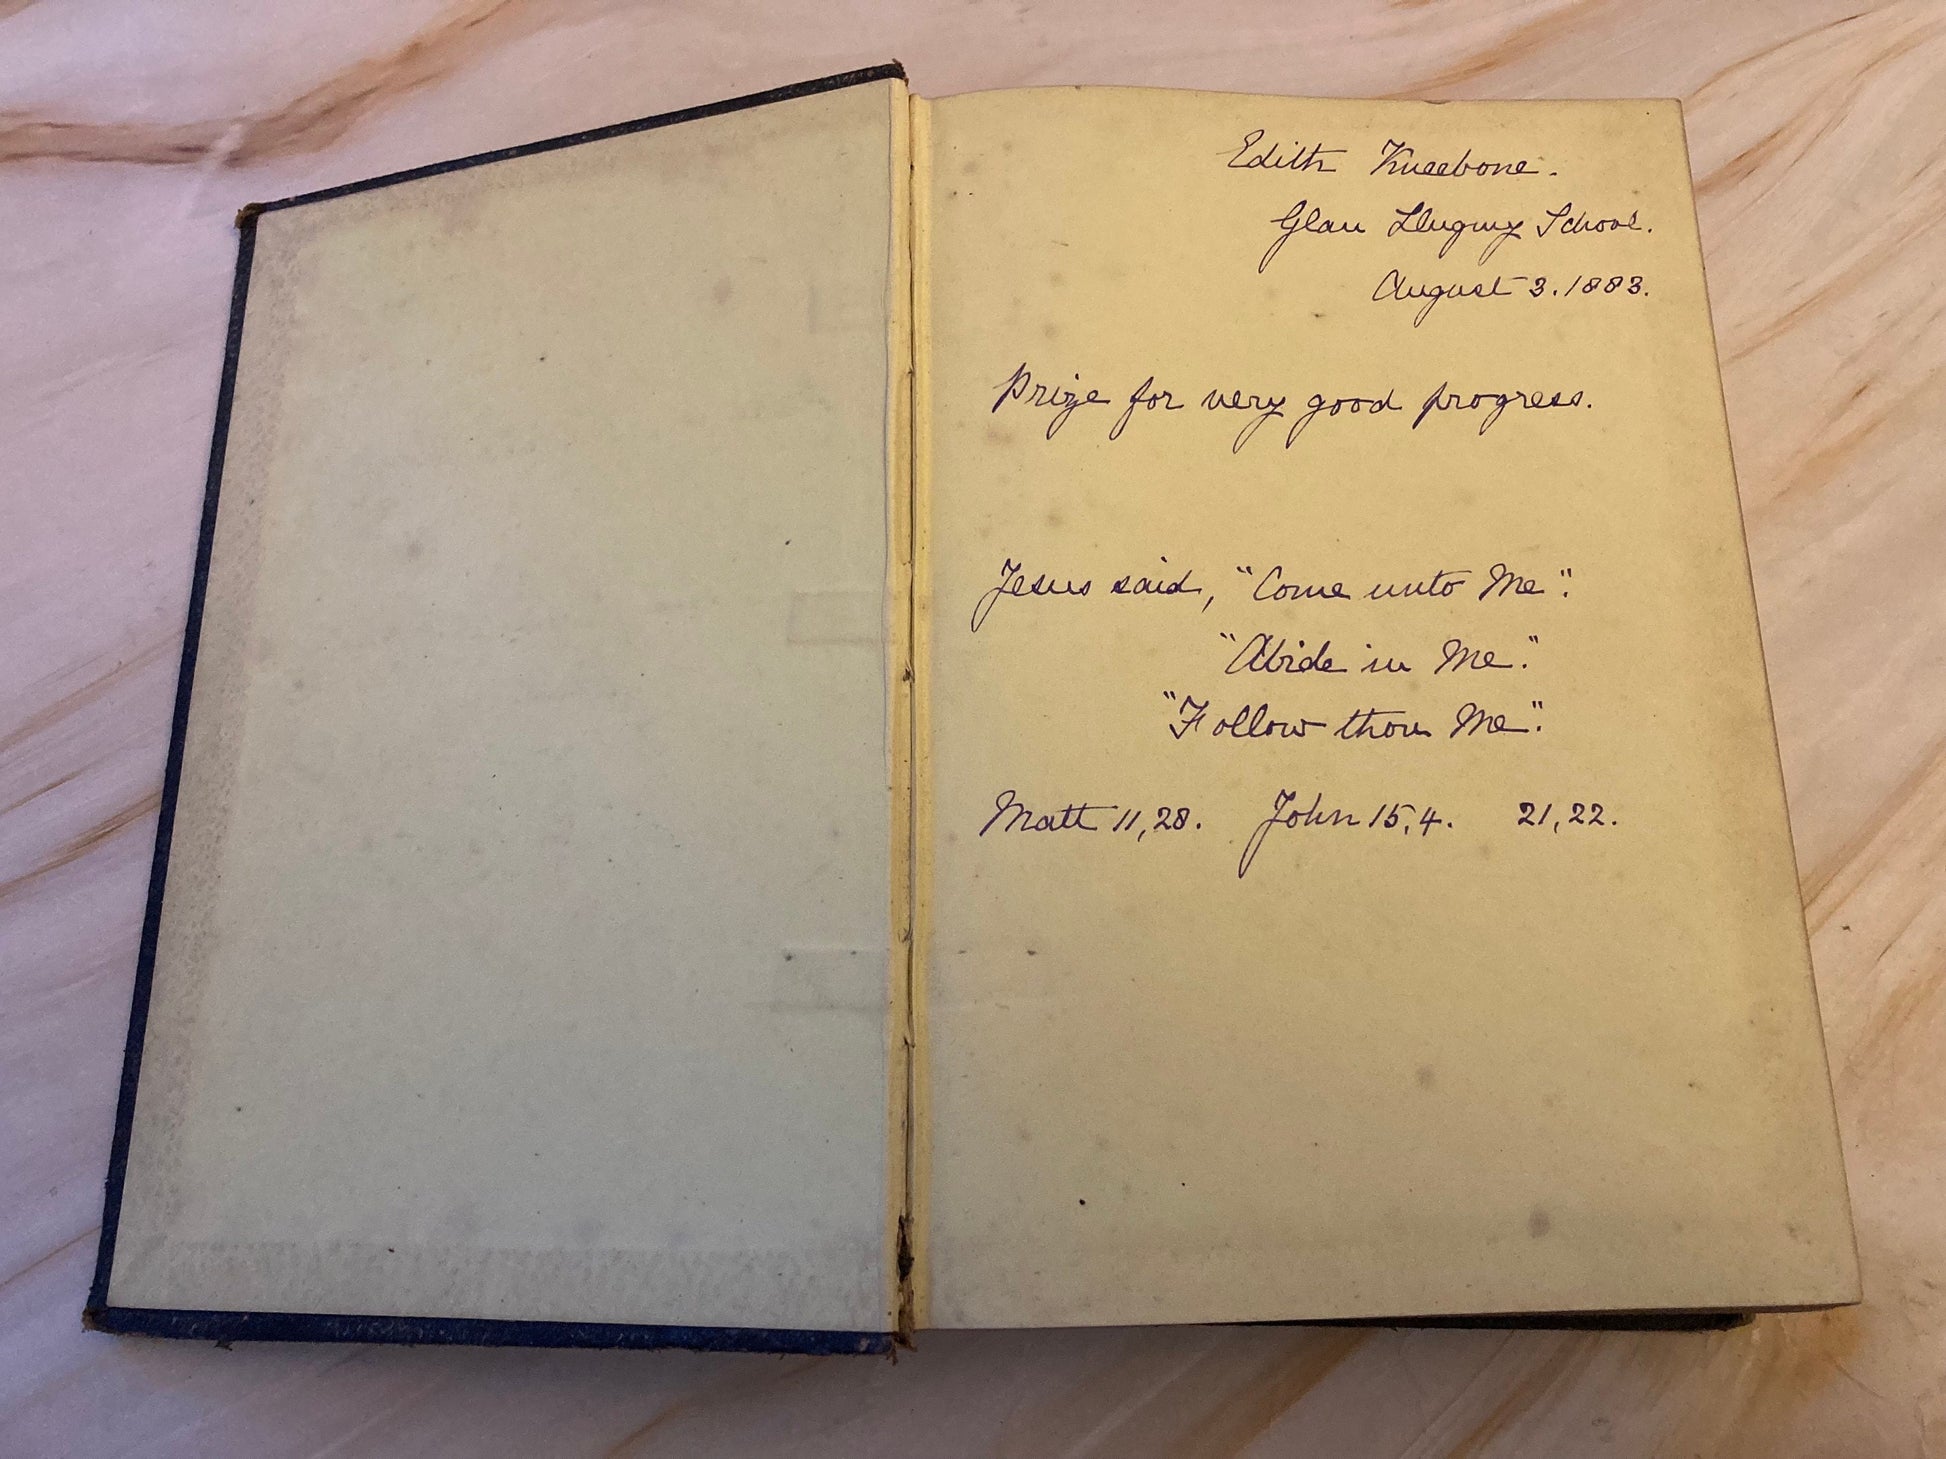 Edith Kneebone.
Glan Llugwy School.
August 3. 1883.
Prize for very good progress.
Jesus said, "Come unto Me".
"Abide in Me."
"Follow thou Me".
Matt 11,28. John 15,4. 21,22.